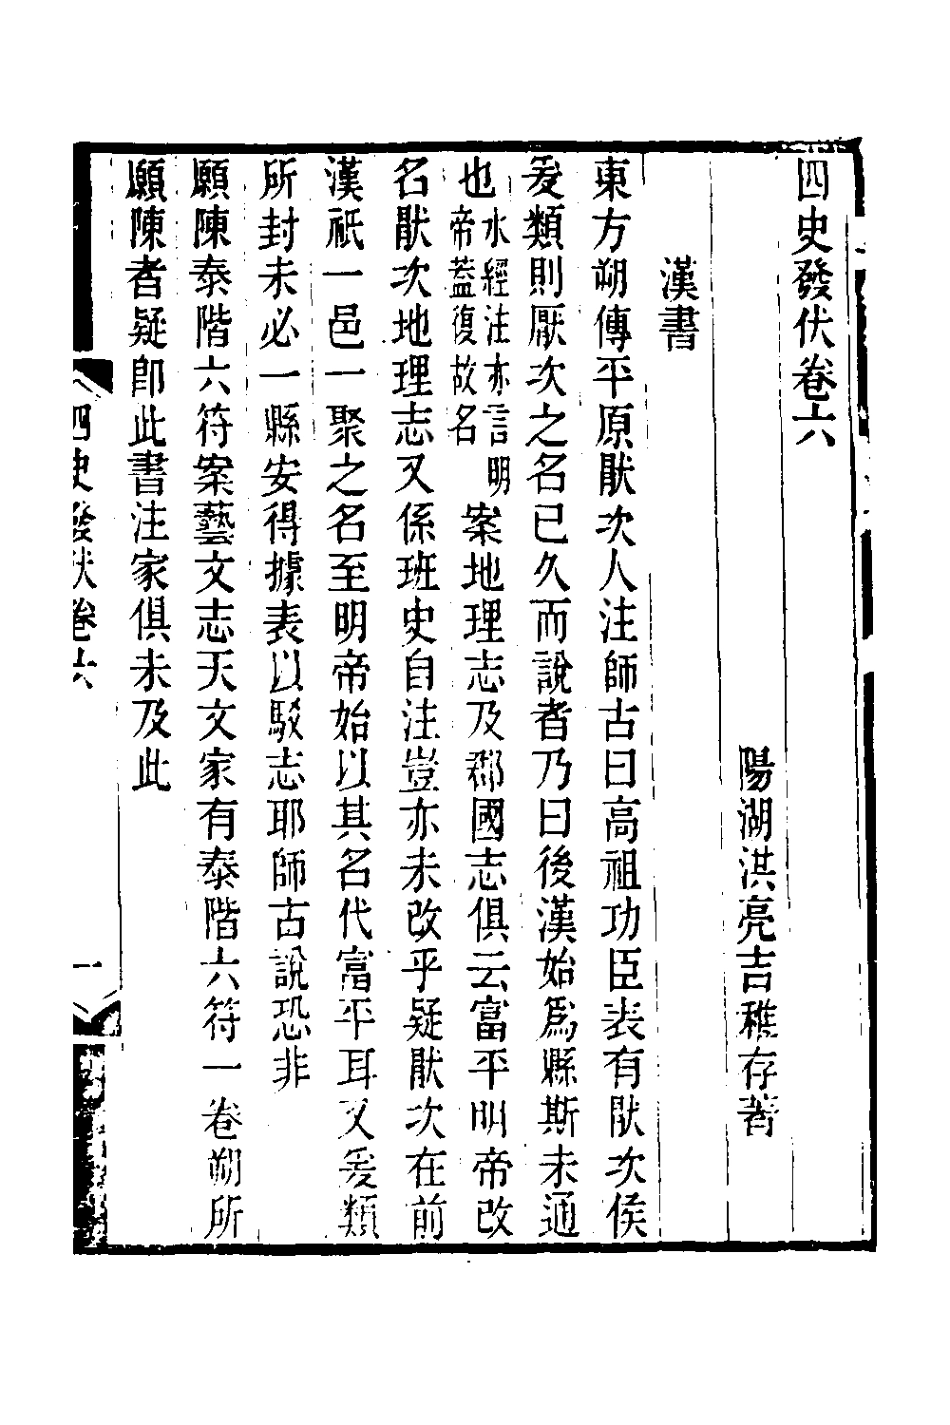 四史發伏卷六
陽湖洪亮吉稚存著
漢書
東方朔傳平原猒次人注師古曰高祖功臣表有猒次侯
爰類則厭次之名已久而說者乃曰後漢始爲縣斯未通
也水經注亦言明帝蓋復故名案地理志及郡國志俱云富平明帝改
名猒次地理志又係班史自注豈亦未改乎疑猒次在前
漢祇一邑一聚之名至明帝始以其名代富平耳又爰類
所封未必一縣安得據表以駁志耶師古說恐非
願陳泰階六符案藝文志天文家有泰階六符一卷朔所
願陳者疑卽此書注家俱未及此
四史發伏卷六
一